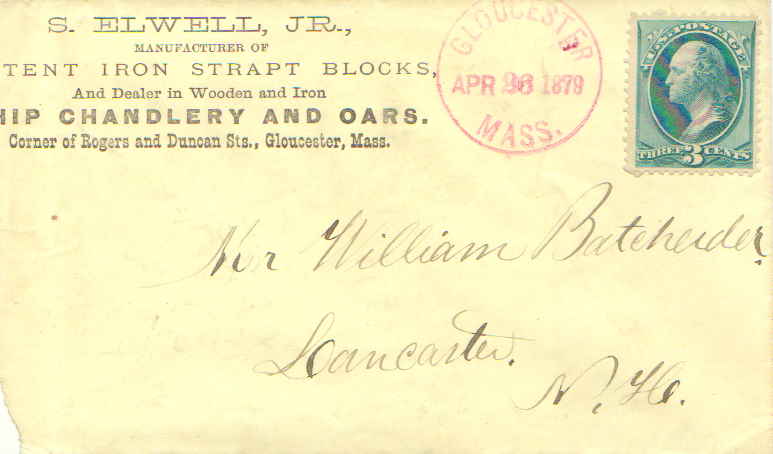 S. ELWELL, JR.,
MANUFACTURER OF
TENT IRON STRAPT BLOCKS,
And Dealer in Wooden and Iron
HIP CHANDLERY AND OARS.
Corner of Rogers and Duncan Sts., Gloucester, Mass.
GLOUCESTER
APR 1879
MASS.
U.S. POSTAGE
THREE 3 CENTS
Mr William Batchelder
Lancaster.
N. H.